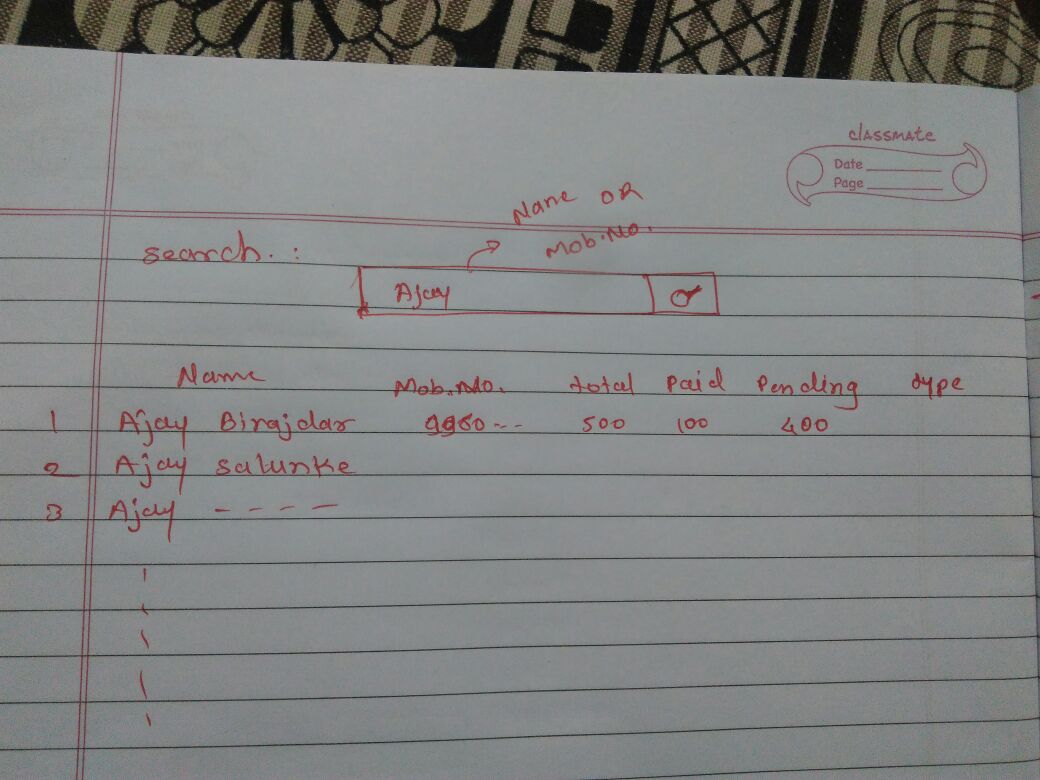 classmate
Date
Page
Name OR
Mob.No.
search. :
Ajay
Name Mob.No. total Paid Pending type
1 Ajay Birajdar 9960-- 500 100 400
2 Ajay salunke
3 Ajay ----